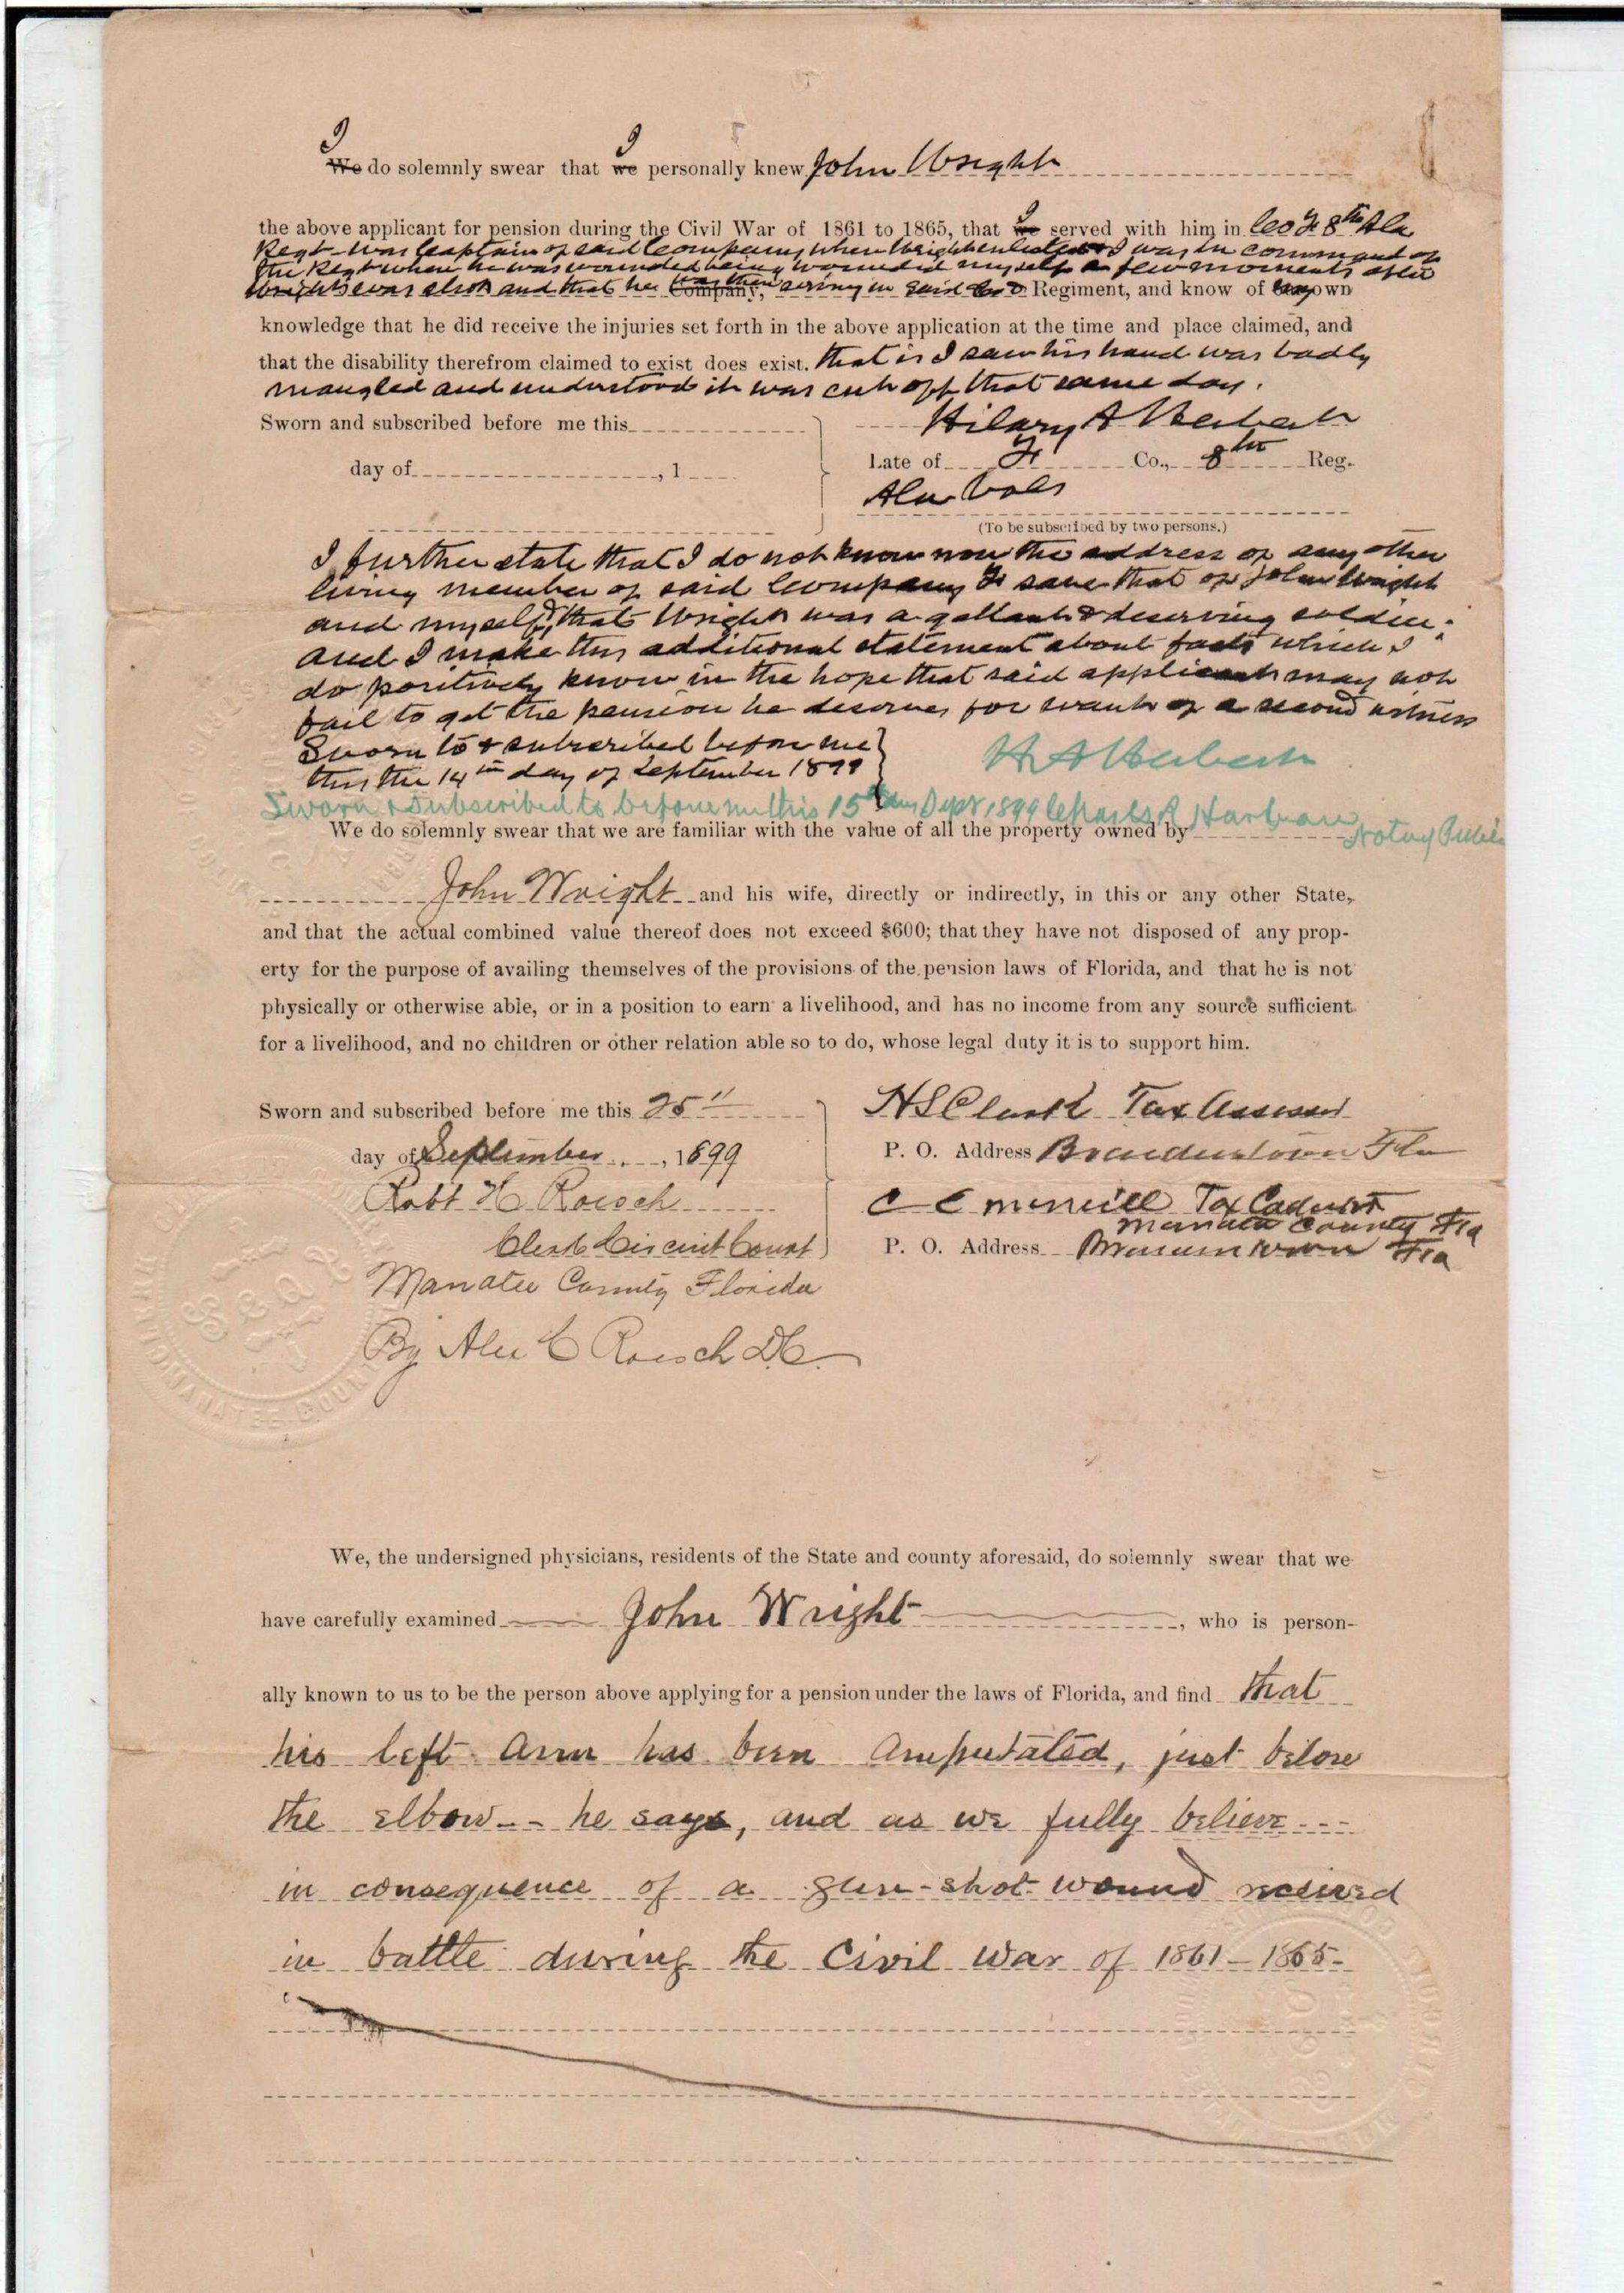 I I
We do solemnly swear that we personally knew John Wright
the above applicant for pension during the Civil War of 1861 to 1865, that we I served with him in Co F 8th Ala
Regt was Captain of said Company when Wright enlisted I was in command of
the Regt when he was wounded being wounded myself a few moments after
Wright was shot and that he was then Company, serving in said Regiment, and know of my own
knowledge that he did receive the injuries set forth in the above application at the time and place claimed, and
that the disability therefrom claimed to exist does exist. that is I saw his hand was badly
mangled and understood it was cut off that same day.
Sworn and subscribed before me this
Hilary A Herbert
day of , 1
Late of F Co., 8th Reg.
Ala Vols
(To be subscribed by two persons.)
I further state that I do not know now the address of any other
living member of said Company F save that of John Wright
and myself, that Wright was a gallant & deserving soldier;
and I make this additional statement about facts which I
do positively know in the hope that said applicant may not
fail to get the pension he deserves for want of a second witness
Sworn to & subscribed before me
this the 14th day of September 1899
H A Herbert
Sworn & Subscribed to before me this 15th day Sept 1899 Charles R Notary Public
We do solemnly swear that we are familiar with the value of all the property owned by
John Wright and his wife, directly or indirectly, in this or any other State,
and that the actual combined value thereof does not exceed $600; that they have not disposed of any prop-
erty for the purpose of availing themselves of the provisions of the pension laws of Florida, and that he is not
physically or otherwise able, or in a position to earn a livelihood, and has no income from any source sufficient
for a livelihood, and no children or other relation able so to do, whose legal duty it is to support him.
Sworn and subscribed before me this 25"
H S Clark Tax Assessor
day of September , 1899
P. O. Address Braidentown Fla
Robt H Roesch
C C Merrill Tax
Manatee County Fla
Clerk Circuit Court
P. O. Address Braidentown Fla
Manatee County Florida
By Alex C Roesch D.C.
MANATEE COUNTY
SEAL
We, the undersigned physicians, residents of the State and county aforesaid, do solemnly swear that we
have carefully examined John Wright , who is person-
ally known to us to be the person above applying for a pension under the laws of Florida, and find that
his left arm has been amputated, just below
the elbow -- he says, and as we fully believe ---
in consequence of a gun-shot wound received
in battle during the Civil War of 1861-1865-